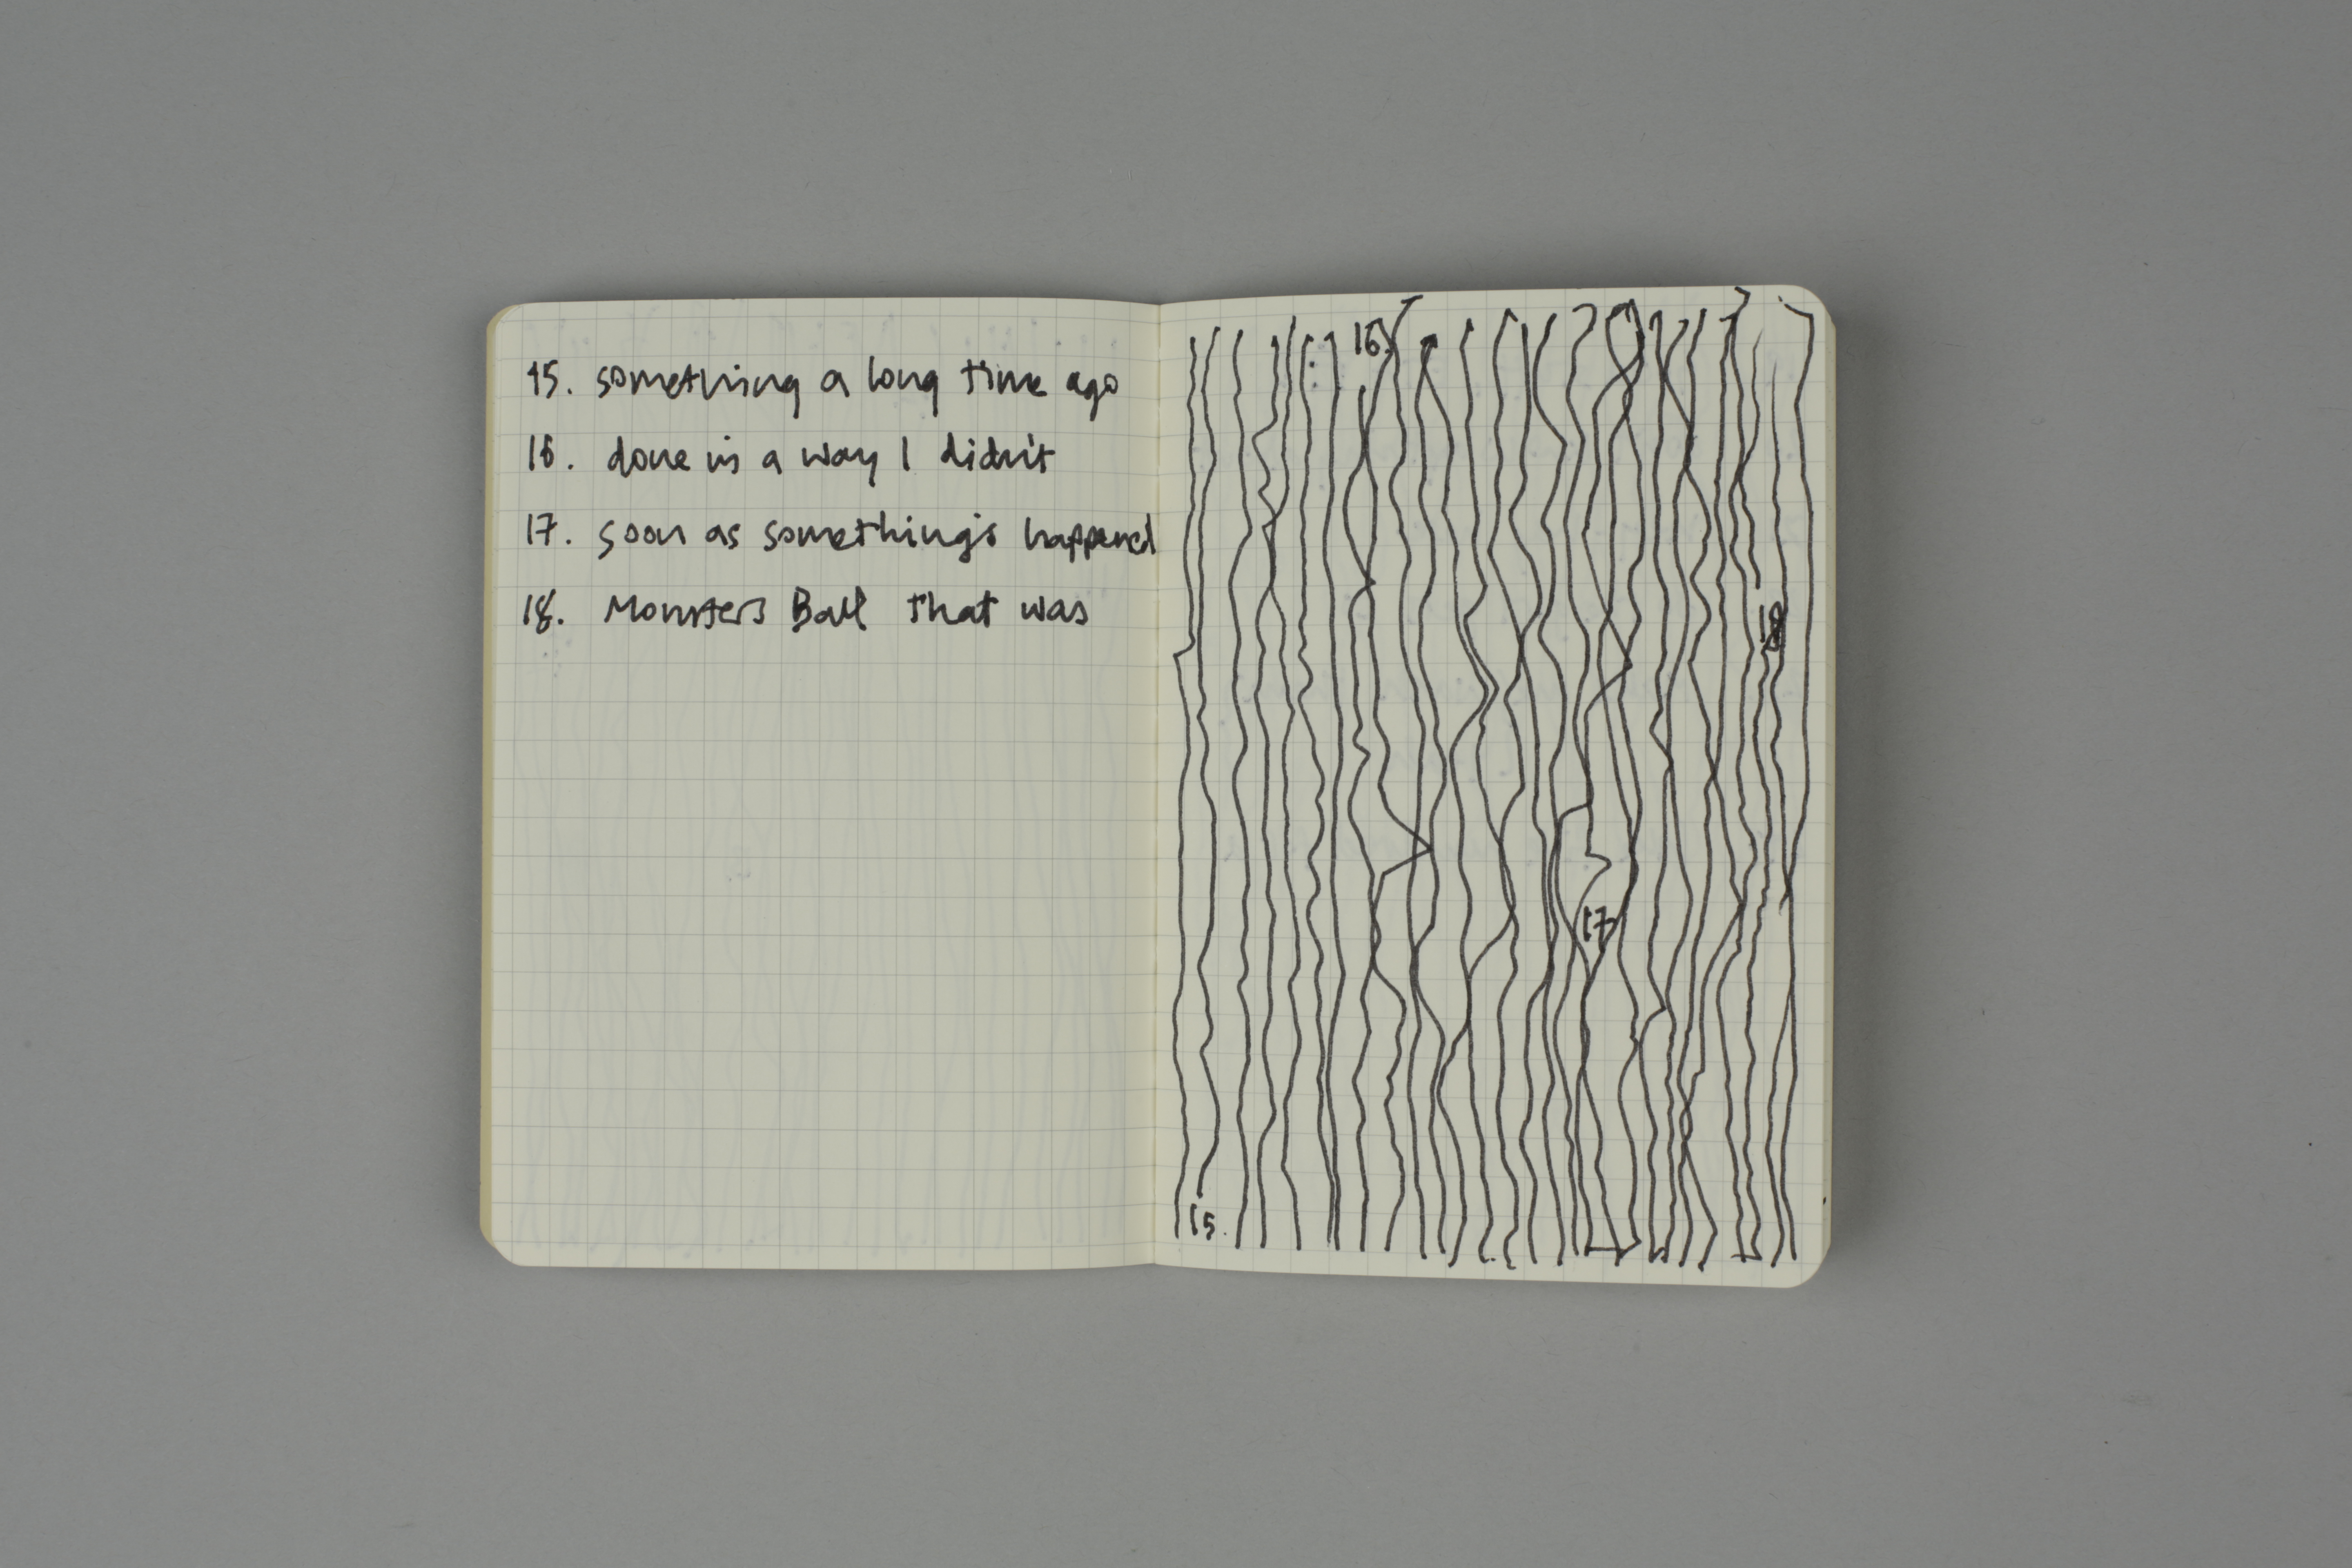 15. something a long time ago
16. done in a way I didn't
17. soon as something's happened
18. Monsters Ball that was
16.
18
17
15.